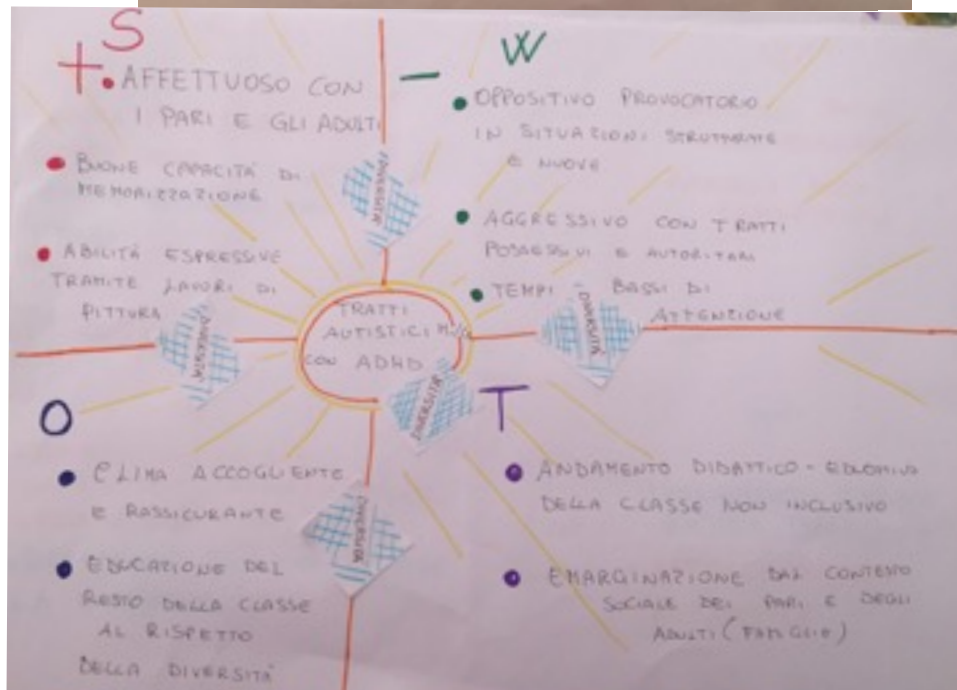 S
+
• AFFETTUOSO CON
I PARI E GLI ADULTI
• BUONE CAPACITÀ DI
MEMORIZZAZIONE
• ABILITÀ ESPRESSIVE
TRAMITE LAVORI DI
PITTURA
W
-
• OPPOSITIVO PROVOCATORIO
IN SITUAZIONI STRUTTURATE
E NUOVE
• AGGRESSIVO CON TRATTI
POSSESSIVI E AUTORITARI
• TEMPI BASSI DI
ATTENZIONE
DIVERSITÀ
DIVERSITÀ
DIVERSITÀ
TRATTI
AUTISTICI
CON ADHD
DIVERSITÀ
DIVERSITÀ
O
• CLIMA ACCOGLIENTE
E RASSICURANTE
• EDUCAZIONE DEL
RESTO DELLA CLASSE
AL RISPETTO
DELLA DIVERSITÀ
T
• ANDAMENTO DIDATTICO - EDUCATIVO
DELLA CLASSE NON INCLUSIVO
• EMARGINAZIONE DAL CONTESTO
SOCIALE DEI PARI E DEGLI
ADULTI (FAMIGLIE)